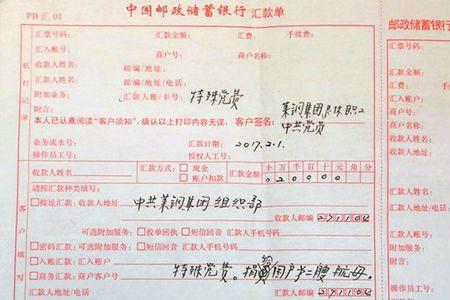 PB汇01 中国邮政储蓄银行 汇款单
邮政储蓄银
汇票号码: 汇款金额: 汇费: 手续费:
汇票号码:
汇入账号: 商户号: 商户名称:
费:
收款人姓名: 邮编/地址:
汇入账号:
汇款人姓名: 邮编/地址/电话:
收款人姓名:
附加业务: 汇款人账/卡号: 特殊党费
汇款人姓名
附言: 莱钢集团退休职工
附加业务:
本人已认真阅读“客户须知”,确认以上打印内容无误。 客户签名: 中共党员
附言:
业务流水号: 汇款日期: 2017.2.1.
业务流水号
操作员工号: 授权人工号:
操作员工号:
机打记录
收款人姓名: 汇款方式: 现金 账户扣款 汇款金额 十万千百十元角分
020000
收款人姓名
请按汇款种类填写:
请按汇款
按址汇款: 地址: 中共莱钢集团组织部
收款人邮编 271104
可选附加服务: 投单回执 短信回音 汇款人手机号码
密码汇款: 可选附加服务: 短信回音 汇款人手机号码
商务汇款: 商户客户号: 附言: 特殊党费。捐资国产第二艘航母。
汇款人地址: 汇款人邮编 271104
客户填写